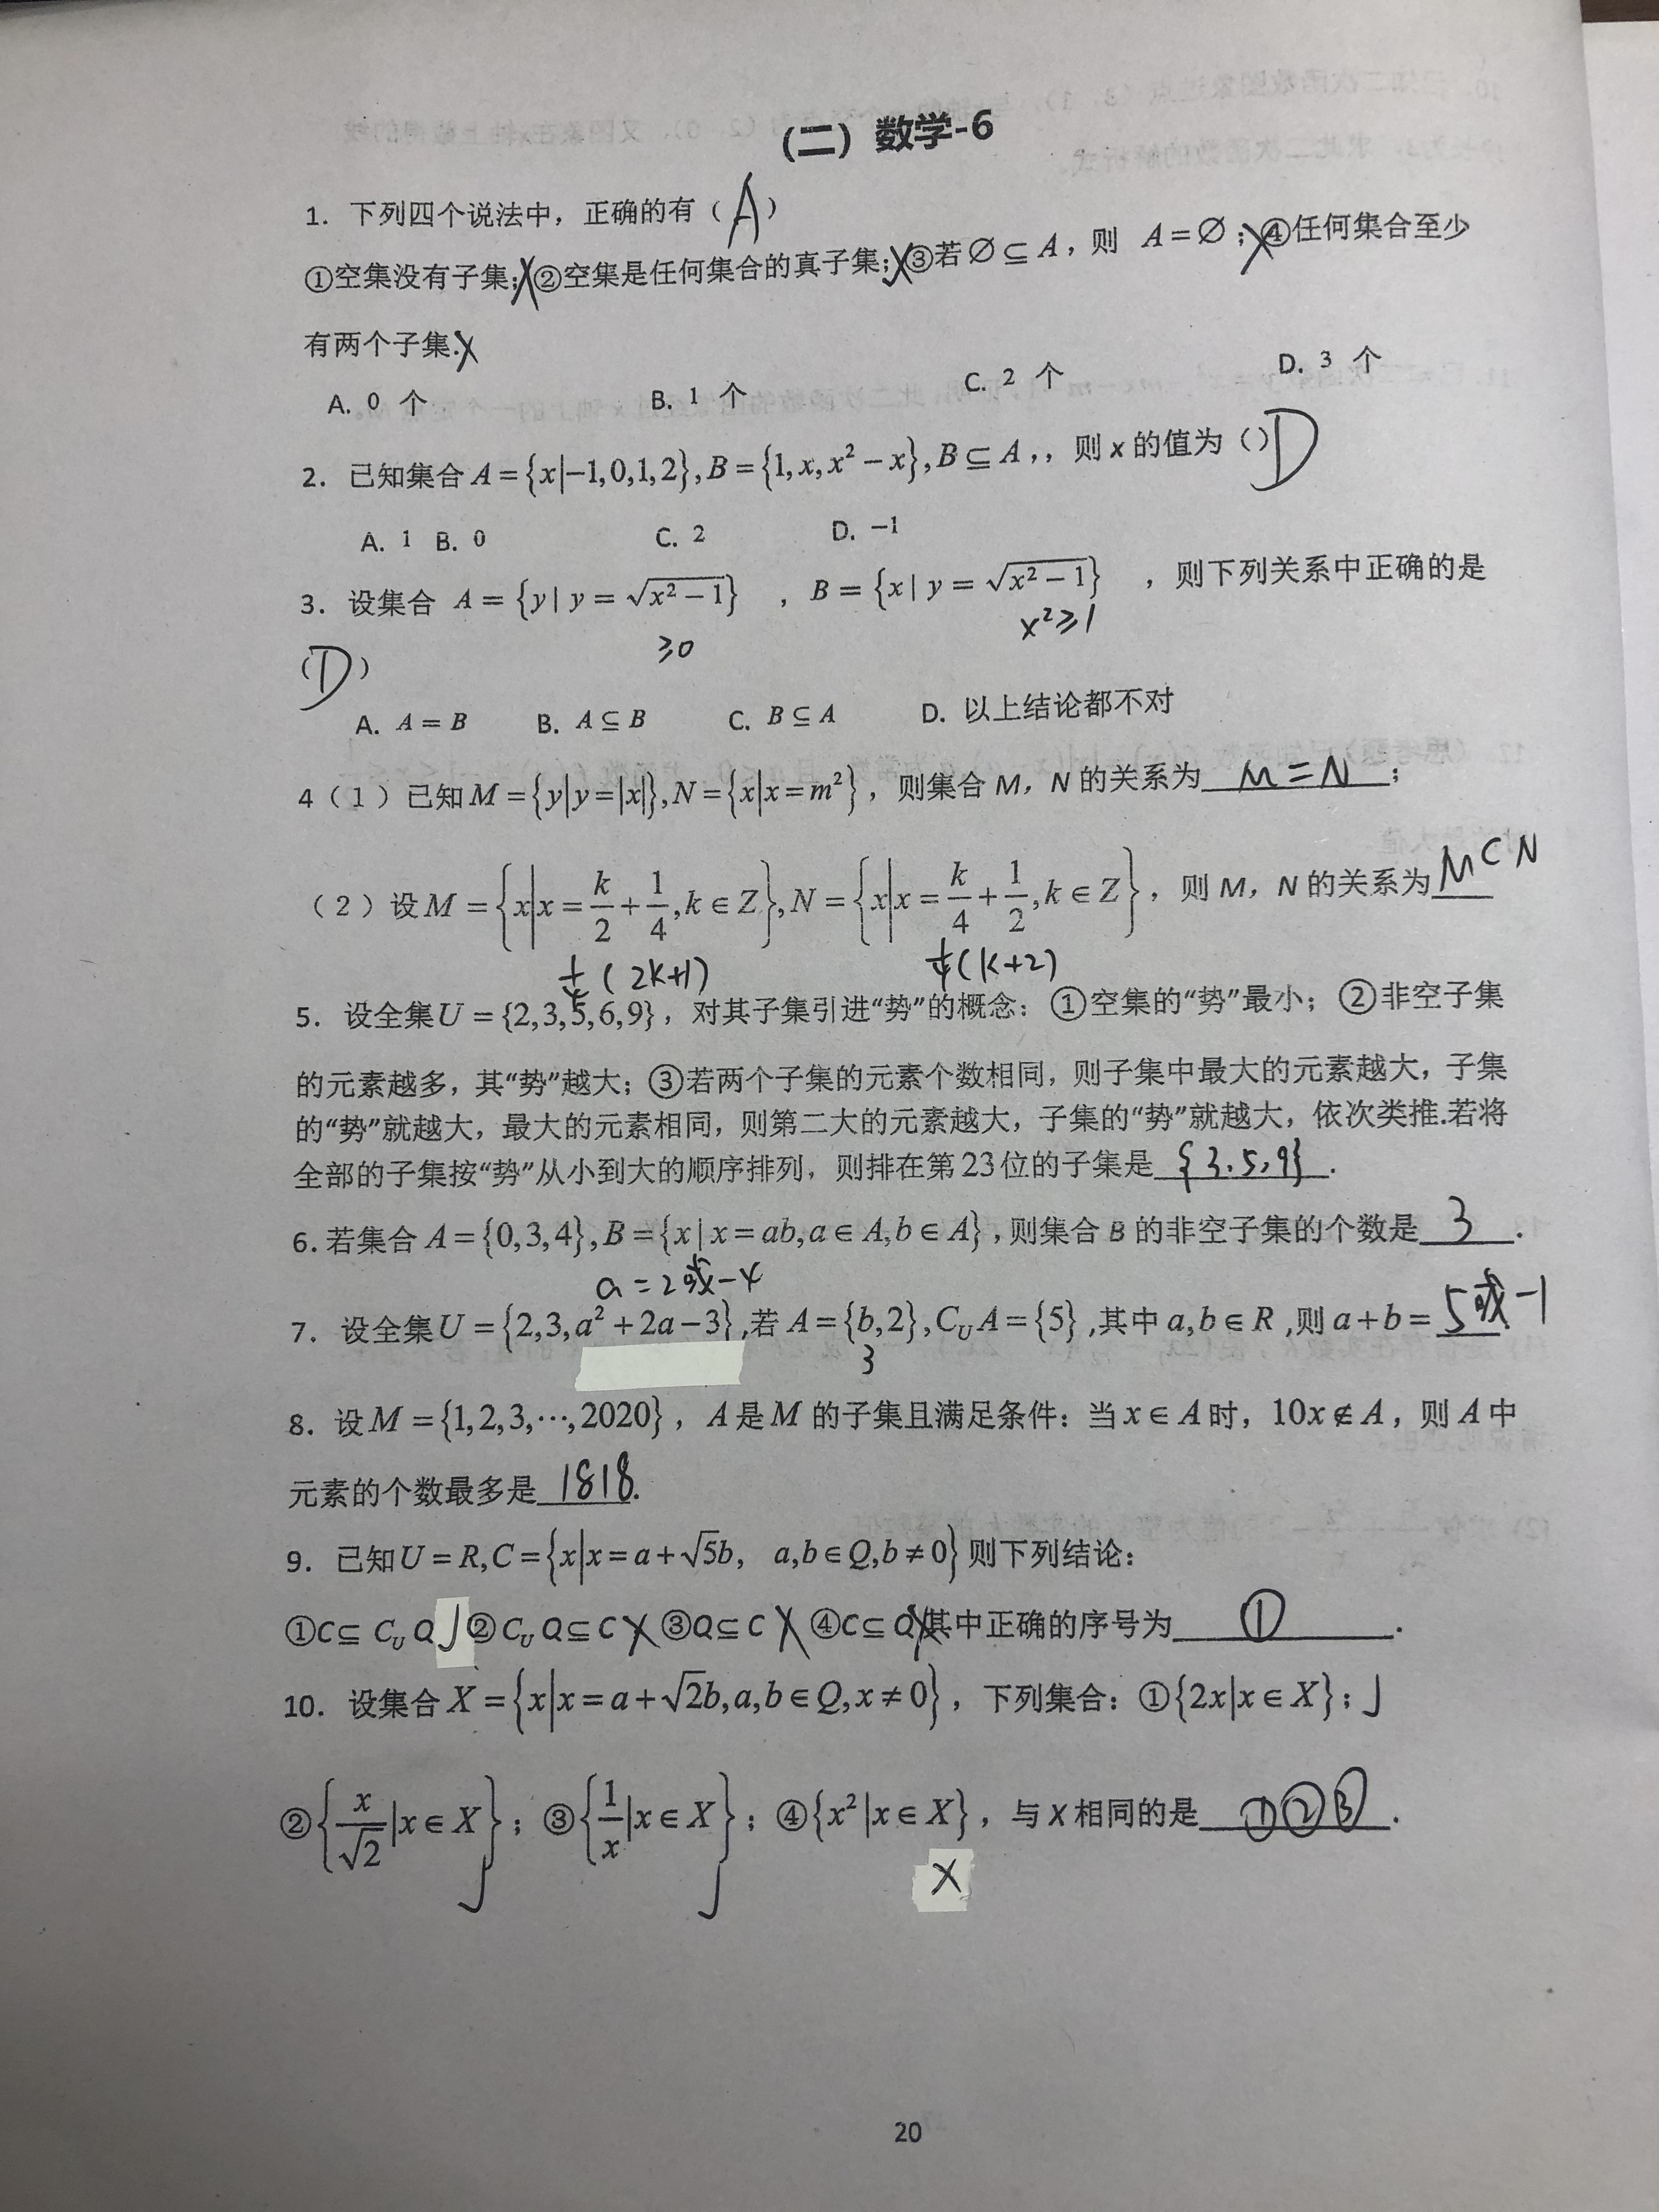 （二）数学-6
1. 下列四个说法中，正确的有（A）
①空集没有子集；X ②空集是任何集合的真子集；X ③若∅⊆A，则 A=∅；X ④任何集合至少
有两个子集.X
A. 0 个 B. 1 个 C. 2 个 D. 3 个
2. 已知集合 A={x|−1,0,1,2},B={1,x,x²−x},B⊆A，，则 x 的值为（）D
A. 1 B. 0 C. 2 D. −1
3. 设集合 A={y|y=√(x²−1)} ，B={x|y=√(x²−1)} ，则下列关系中正确的是
≥0 x²≥1
（D）
A. A=B B. A⊆B C. B⊆A D. 以上结论都不对
4（1）已知 M={y|y=|x|},N={x|x=m²}，则集合 M，N 的关系为 M=N ；
（2）设 M={x|x=k/2+1/4,k∈Z},N={x|x=k/4+1/2,k∈Z}，则 M，N 的关系为 M⊂N
1/4(2k+1) 1/4(k+2)
5. 设全集U={2,3,5,6,9}，对其子集引进“势”的概念：①空集的“势”最小；②非空子集
的元素越多，其“势”越大；③若两个子集的元素个数相同，则子集中最大的元素越大，子集
的“势”就越大，最大的元素相同，则第二大的元素越大，子集的“势”就越大，依次类推.若将
全部的子集按“势”从小到大的顺序排列，则排在第23位的子集是 {3.5,9} .
6. 若集合 A={0,3,4},B={x|x=ab,a∈A,b∈A},则集合 B 的非空子集的个数是 3 .
a=2或−4
7. 设全集U={2,3,a²+2a−3},若 A={b,2},C_U A={5},其中a,b∈R,则a+b= 5或−1
3
8. 设M={1,2,3,⋯,2020}，A是M 的子集且满足条件：当x∈A时，10x∉A，则A中
元素的个数最多是 1818.
9. 已知U=R,C={x|x=a+√5b, a,b∈Q,b≠0}则下列结论：
①C⊆ C_U Q √ ②C_U Q⊆C X ③Q⊆C X ④C⊆Q X 其中正确的序号为 ① .
10. 设集合 X={x|x=a+√2b,a,b∈Q,x≠0}，下列集合：①{2x|x∈X}；√
②{x/√2|x∈X}；③{1/x|x∈X}；④{x²|x∈X}，与 X 相同的是 ①②③ .
√ √ X
20